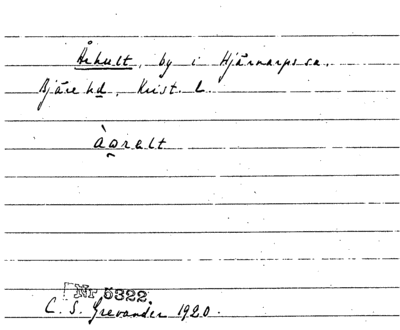 Århult, by i Hjärnarps sn.
Bjäre hd, Krist. L.
àoralt
Nr 5322
C. S. Grevander 1920.